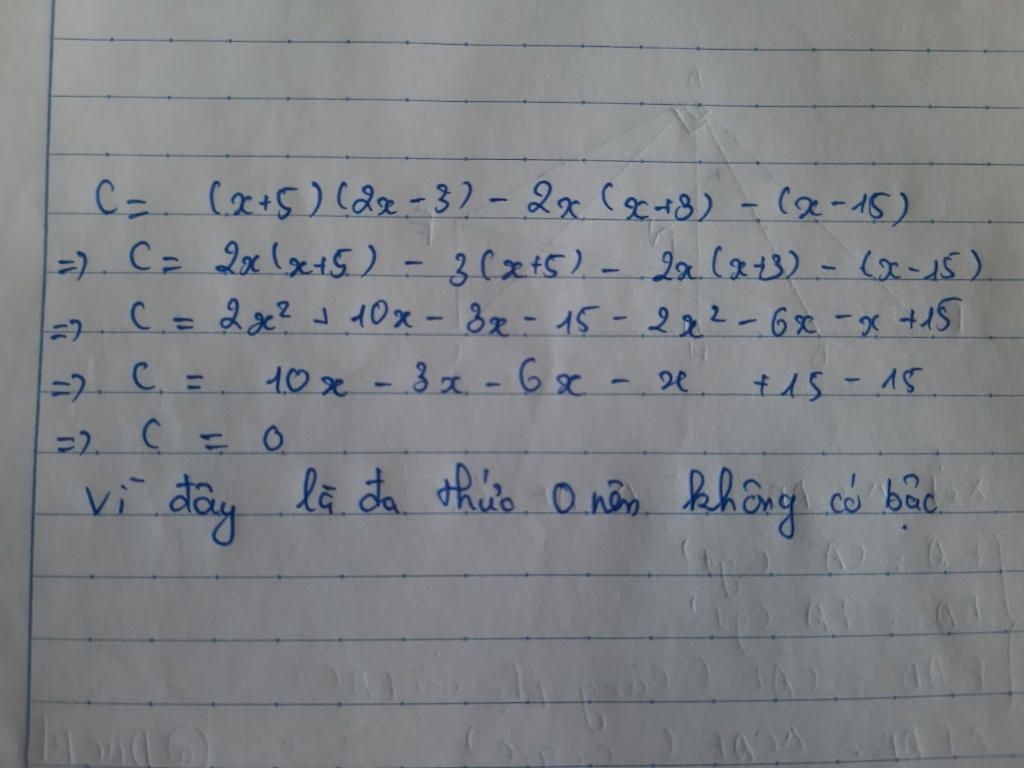 C = (x+5)(2x-3) - 2x(x+3) - (x-15)
=> C = 2x(x+5) - 3(x+5) - 2x(x+3) - (x-15)
=> C = 2x² + 10x - 3x - 15 - 2x² - 6x - x + 15
=> C = 10x - 3x - 6x - x + 15 - 15
=> C = 0
Vì đây là đa thức 0 nên không có bậc